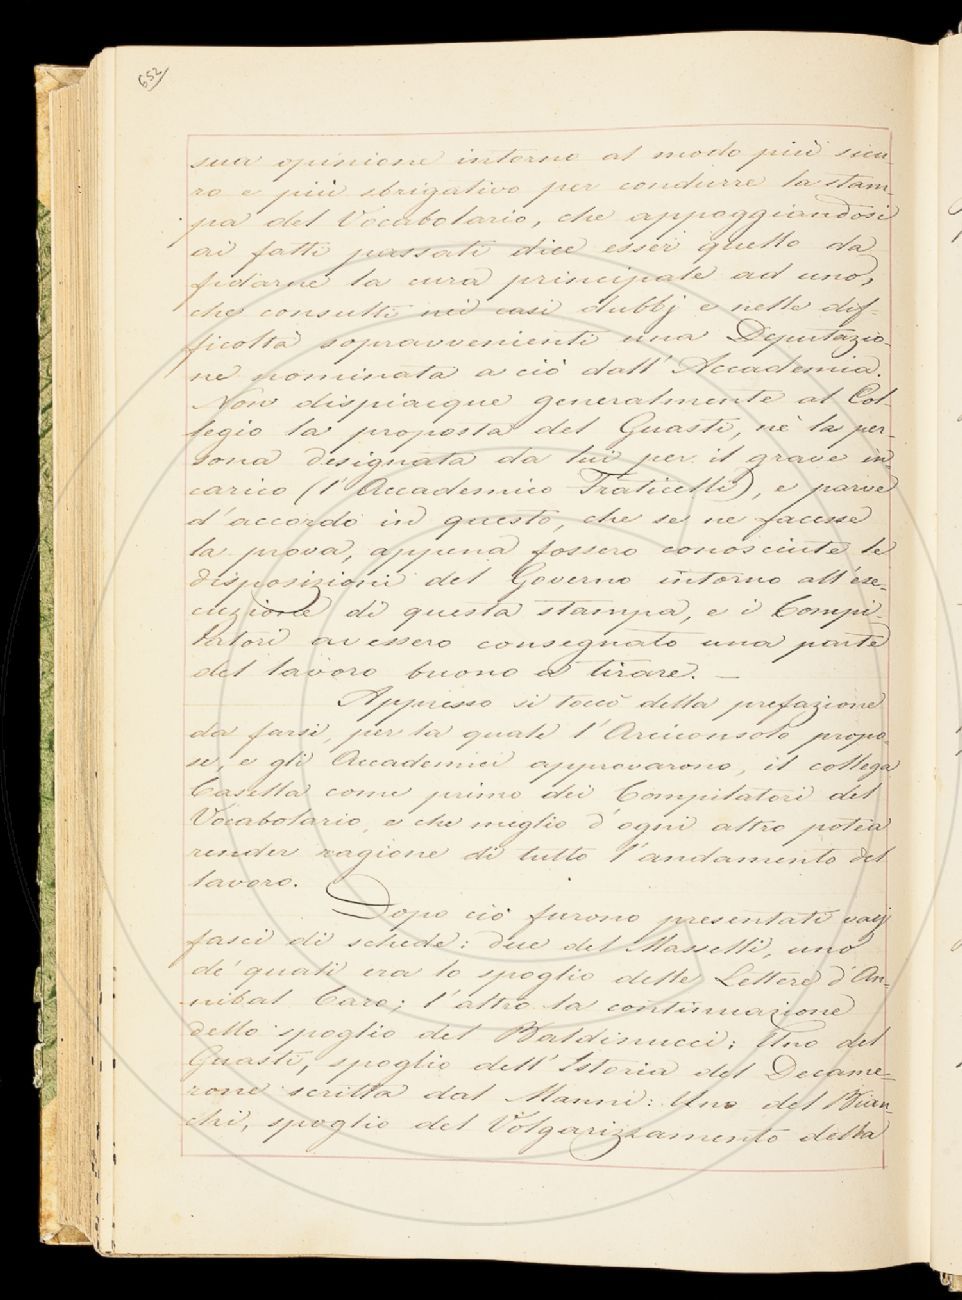 652
sua opinione intorno al modo più sicu-
ro e più sbrigativo per condurre la stam-
pa del Vocabolario, che appoggiandosi
ai fatti passati dice esser quello da
fidarne la cura principale ad uno,
che consulti nei casi dubbj e nelle dif-
ficoltà sopravvenienti una Deputazio-
ne nominata a ciò dall'Accademia.
Non dispiacque generalmente al Col-
legio la proposta del Guasti, nè la per-
sona designata da lui per il grave in-
carico (l'Accademico Fraticelli), e parve
d'accordo in questo, che se ne facesse
la prova, appena fossero conosciute le
disposizioni del Governo intorno all'ese-
cuzione di questa stampa, e i Compi-
latori avessero consegnato una parte
del lavoro buono a tirare. —
Appresso si toccò della prefazione
da farsi, per la quale l'Arciconsolo propo-
se, e gli Accademici approvarono, il collega
Casella come primo dei Compilatori del
Vocabolario, e che meglio d'ogni altro potea
render ragione di tutto l'andamento del
lavoro.
Dopo ciò furono presentati varj
fasci di schede: due del Masselli, uno
de' quali era lo spoglio delle Lettere d'An-
nibal Caro; l'altro la continuazione
dello spoglio del Baldinucci: Uno del
Guasti, spoglio dell'Istoria del Decame-
rone scritta dal Manni: Uno del Bian-
chi, spoglio del Volgarizzamento della